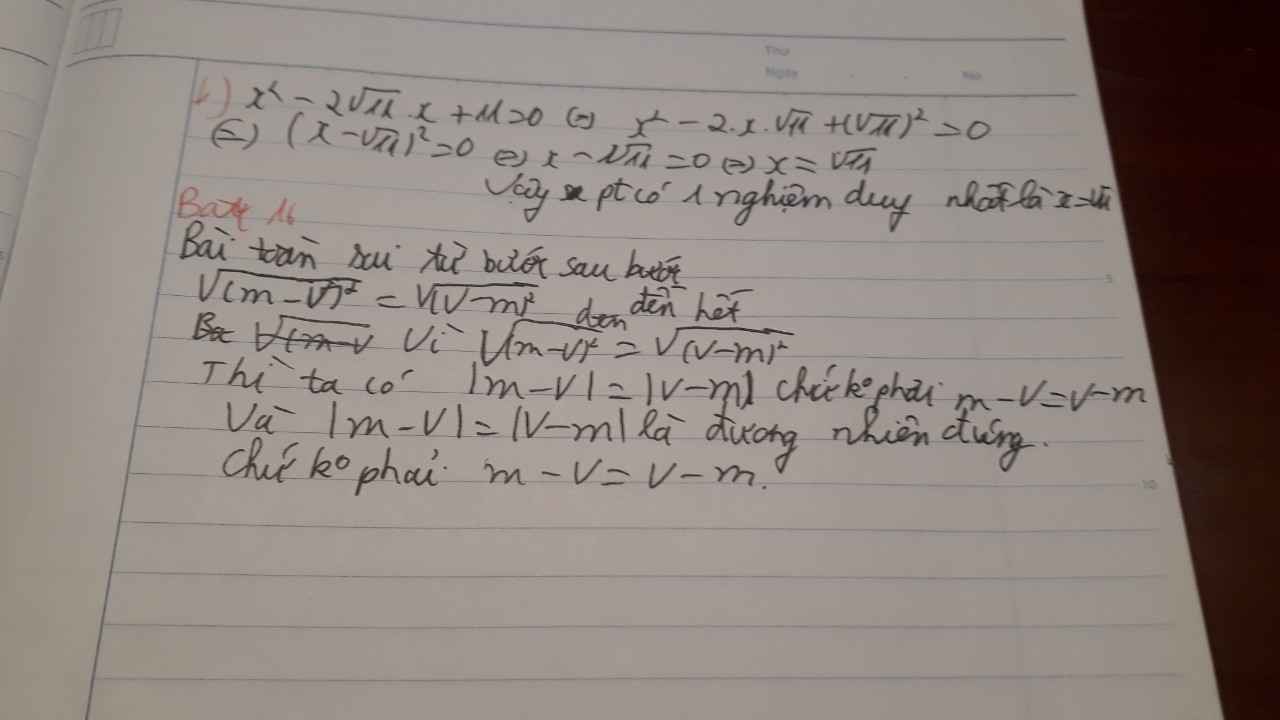 Thứ
Ngày No
b) x² - 2√11 . x + 11 = 0 ⇔ x² - 2.x.√11 + (√11)² = 0
⇔ (x - √11)² = 0 ⇔ x - √11 = 0 ⇔ x = √11
Vậy pt có 1 nghiệm duy nhất là x = √11
Bài 16
Bài toán sai từ bước sau bước
√(m - V)² = √(V - m)² đến hết
Vì √(m - V)² = √(V - m)²
Thì ta có |m - V| = |V - m| chứ ko phải m - V = V - m
Và |m - V| = |V - m| là đương nhiên đúng.
Chứ ko phải m - V = V - m.
5
10